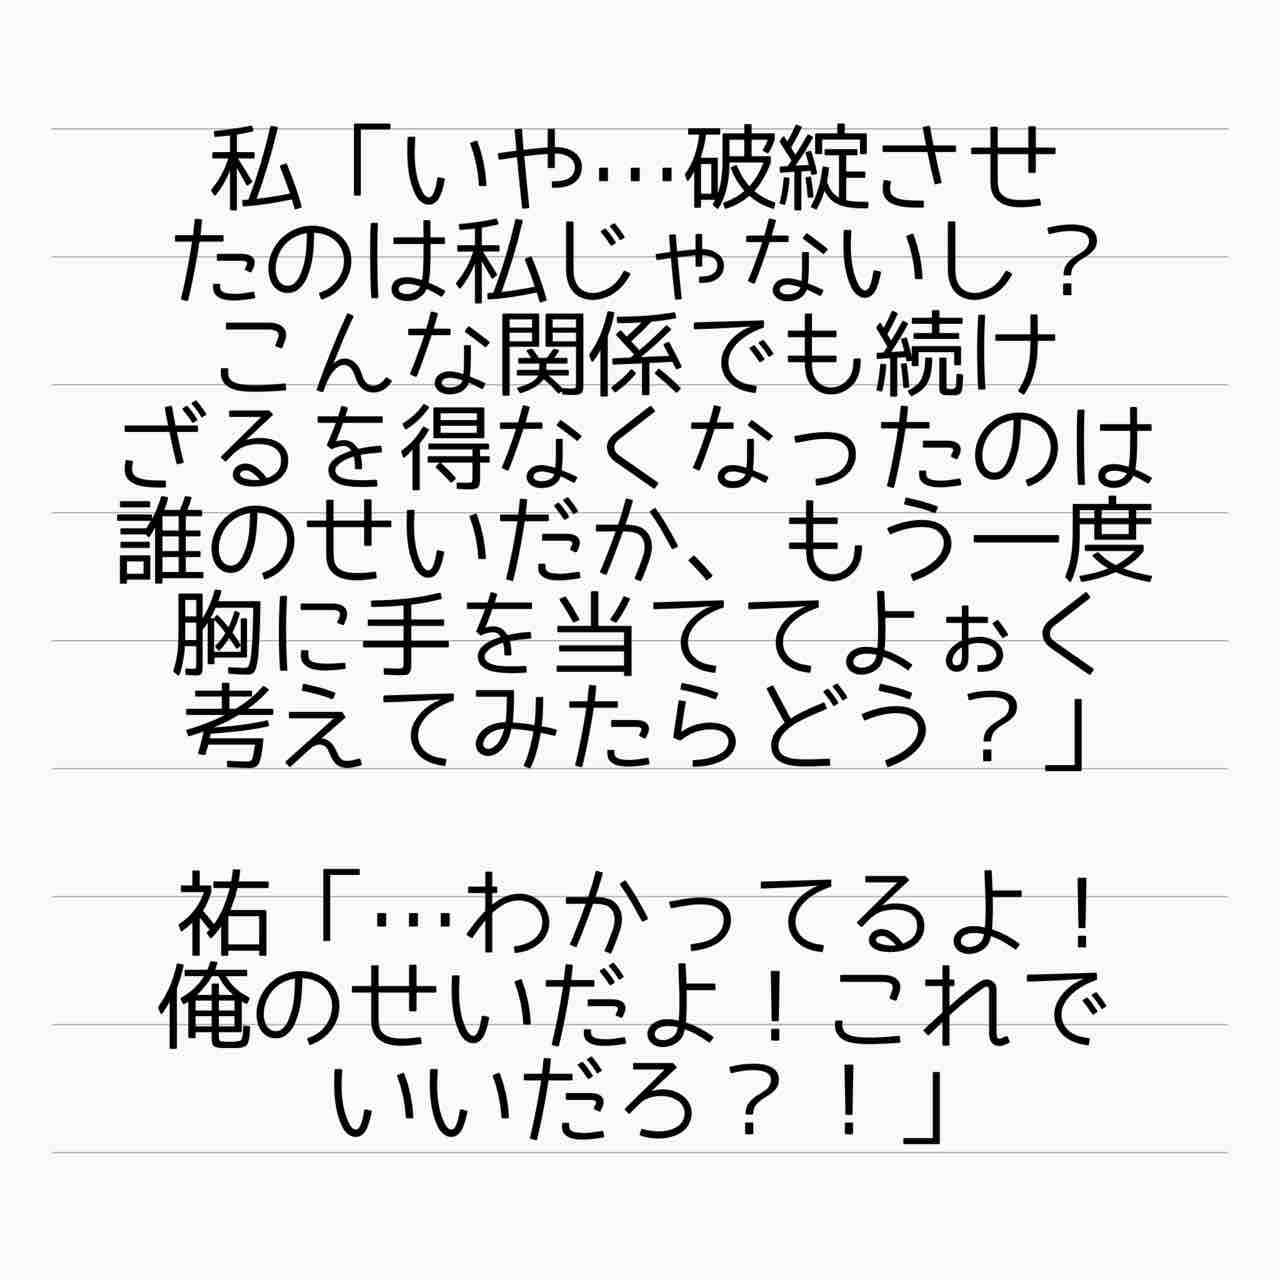 私「いや…破綻させ
たのは私じゃないし？
こんな関係でも続け
ざるを得なくなったのは
誰のせいだか、もう一度
胸に手を当ててよぉく
考えてみたらどう？」
祐「…わかってるよ！
俺のせいだよ！これで
いいだろ？！」